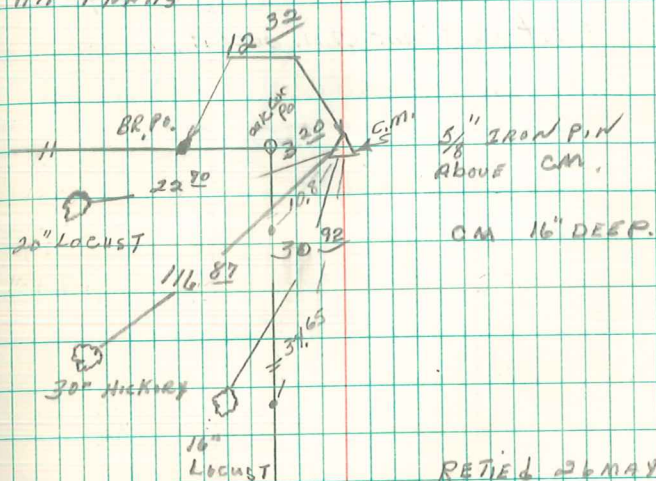 12 32
BR. PO.
PO
3 20
C.M.
5/8" IRON PIN
ABOVE CM.
22 90
10.8
20" LOCUST
30 92
CM 16" DEEP.
116 87
34.65
30" HICKORY
16"
LOCUST
RETIED 26 MAY